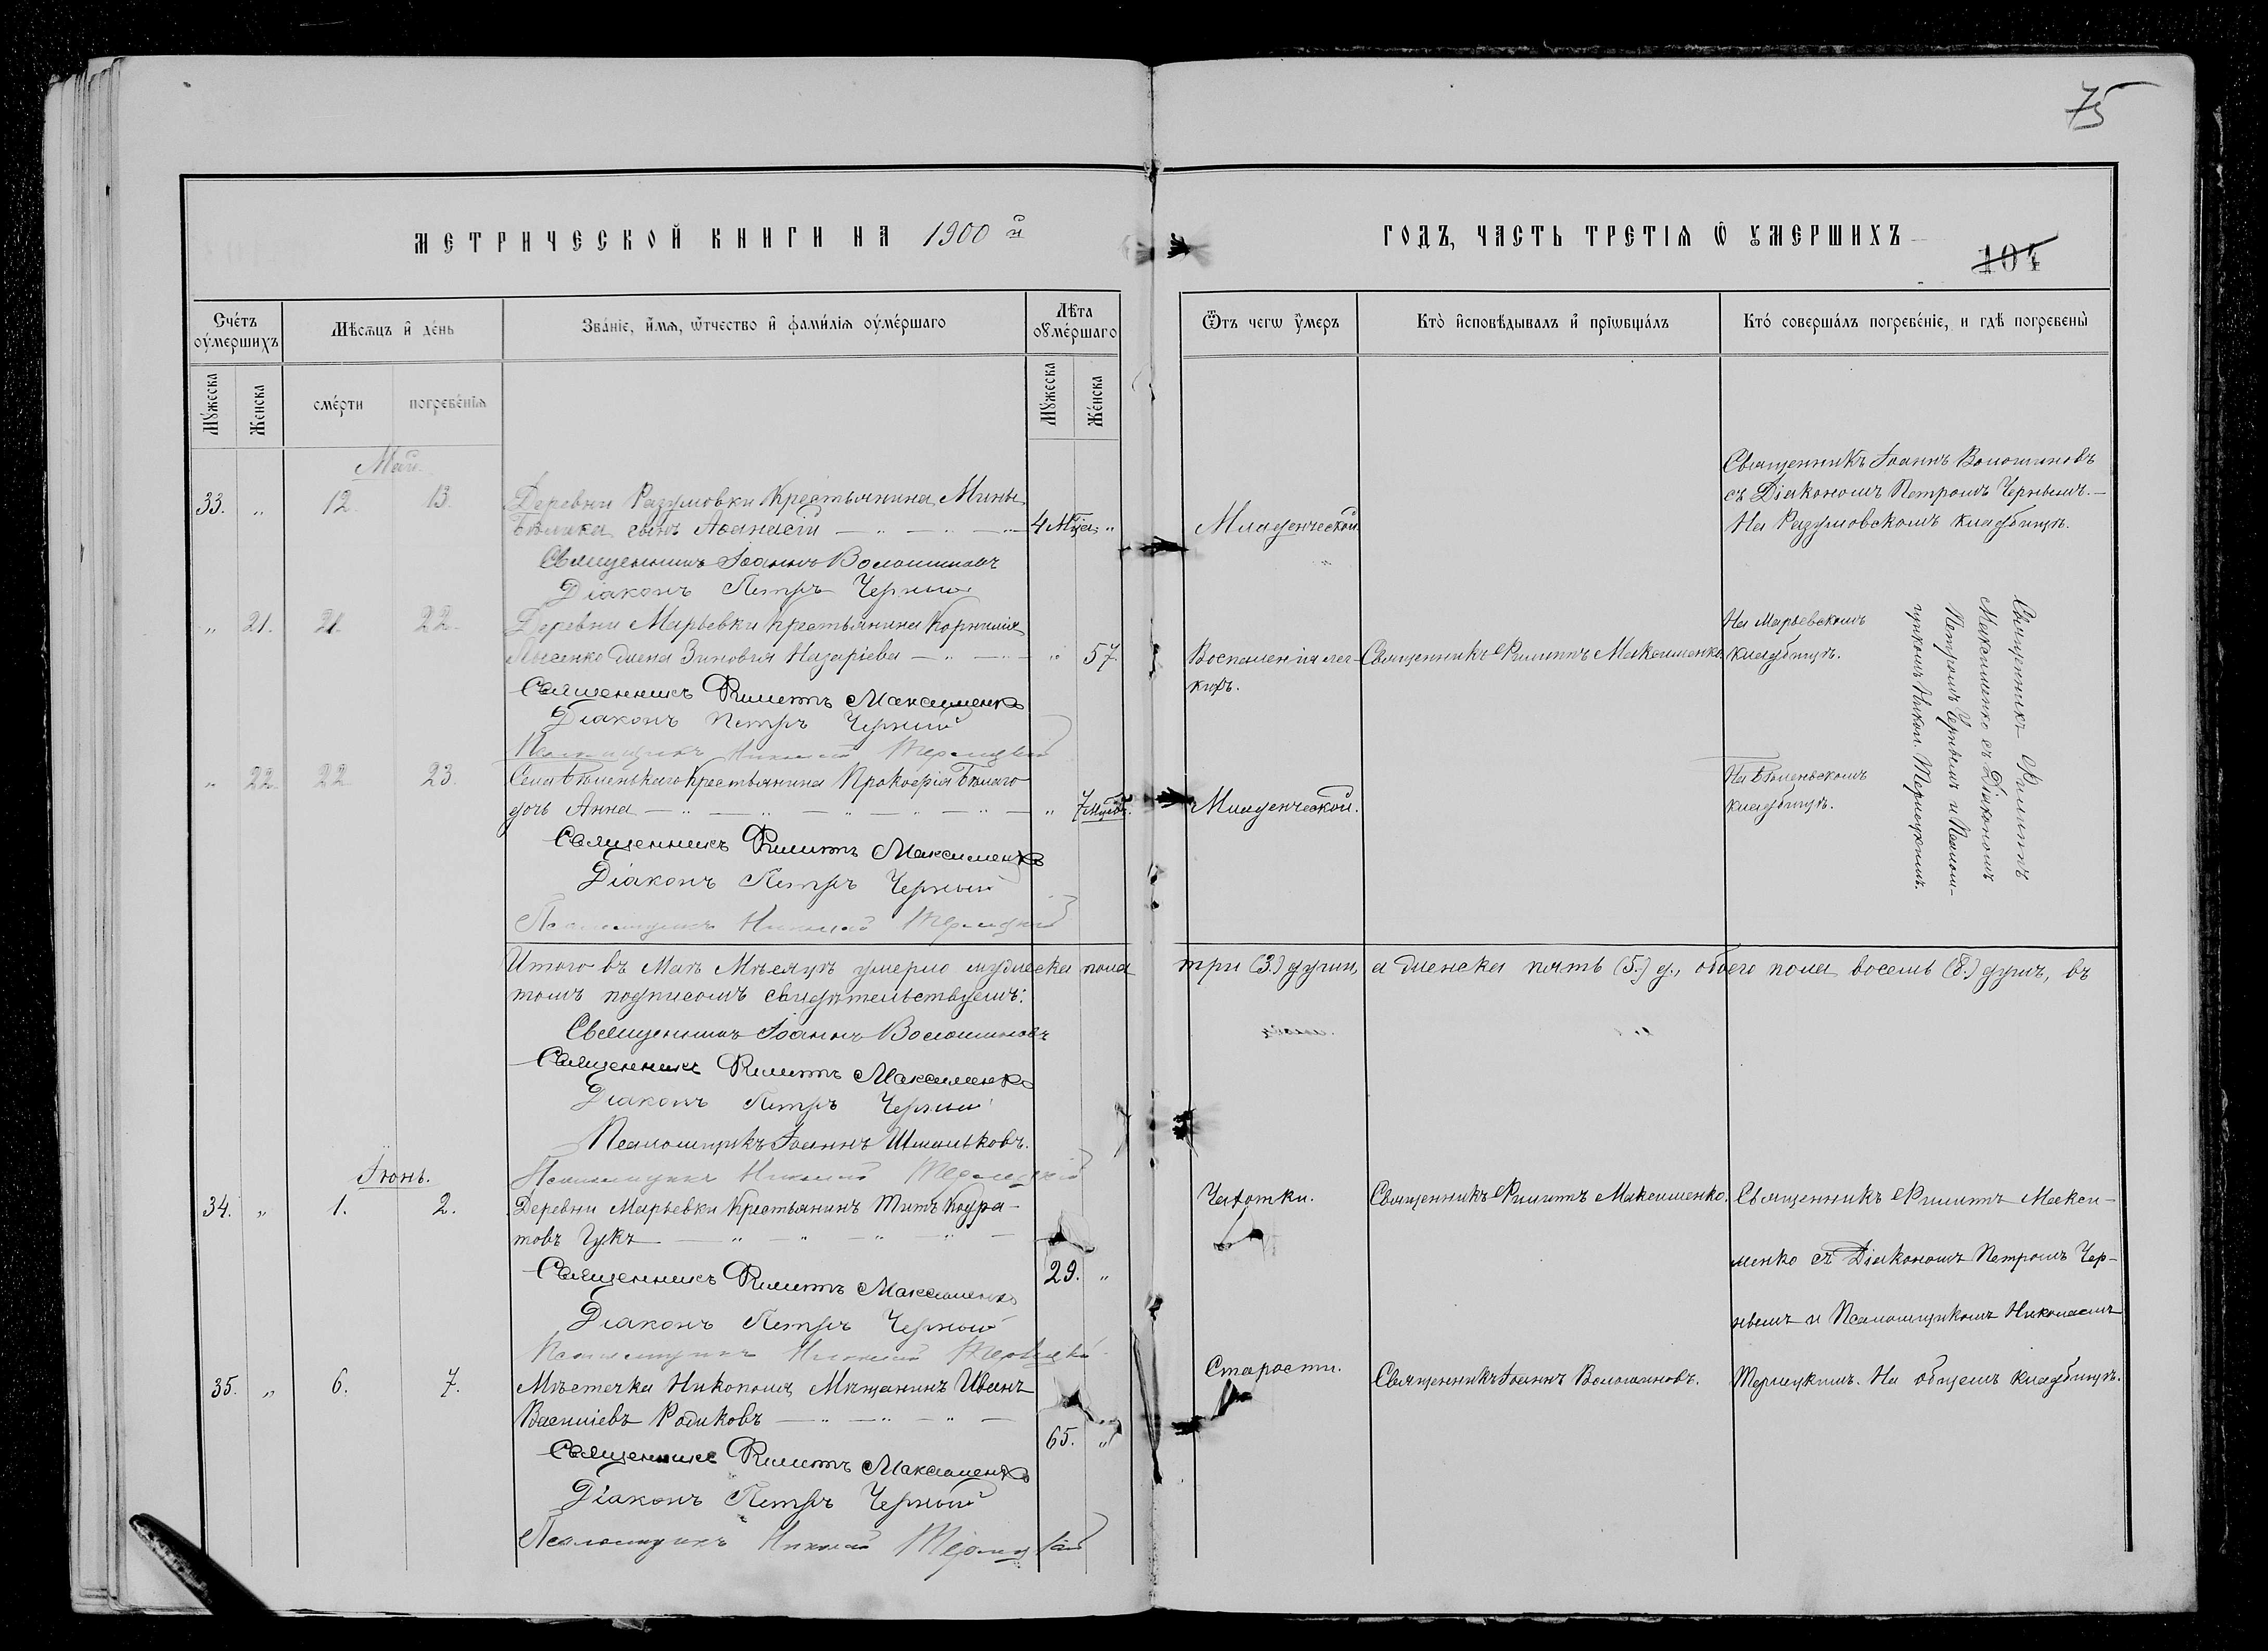 75
МЕТРИЧЕСКОЙ КНИГИ НА 1900 й
ГОДЪ, ЧАСТЬ ТРЕТІѦ Ѿ УМЕРШИХЪ
104
Счетъ оумершихъ
Мѣсѧцъ и день
Званіе, имѧ, ѿтчество и фамиліѧ оумершаго
Лѣта оумершаго
Ѿтъ чегѡ умеръ
Кто исповѣдывалъ и пріѡбщалъ
Кто совершалъ погребеніе, и гдѣ погребены
Мужеска
Женска
смерти
погребеніѧ
Мужеска
Женска
Май.
33. „ 12. 13. Деревни Разумовки Крестьянина Мины
Бѣлика сынъ Аѳанасій 4 Мца „
Младенческой
Священникъ Іоаннъ Волошиновъ
съ Діакономъ Петромъ Чернымъ.
На Разумовскомъ кладбищѣ.
Священникъ Іоаннъ Волошиновъ
Діаконъ Петръ Черный
„ 21. 21. 22. Деревни Марьевки Крестьянина Корнилія
Лысенко жена Зиновія Назаріева „ 57.
Воспаленія лег-
кихъ.
Священникъ Филиппъ Максименко
На Марьевскомъ
кладбищѣ.
Священникъ Филиппъ Максименко
Діаконъ Петръ Черный
Псаломщикъ Николай Терлецкій
„ 22. 22. 23. Села Бѣленькаго Крестьянина Прокофія Бѣлаго
дочь Анна „ 7 мцевъ.
Младенческой.
На Бѣленьскомъ
кладбищѣ.
Священникъ Филиппъ
Максименко съ Діакономъ
Петромъ Чернымъ и Псалом-
щикомъ Никол. Терлецкимъ.
Священникъ Филиппъ Максименко
Діаконъ Петръ Черный
Псаломщикъ Николай Терлецкій
Итого въ Маѣ Мѣсяцѣ умерло мужеска пола три (3.) души, а женска пять (5.) д., обоего пола восемь (8.) душъ, въ
томъ подписомъ свидѣтельствуемъ:
Священникъ Іоаннъ Волошиновъ
Священникъ Филиппъ Максименко
Діаконъ Петръ Черный
Псаломщикъ Іоаннъ Шманьковъ.
Псаломщикъ Николай Терлецкій
Іюнь.
34. „ 1. 2. Деревни Марьевки Крестьянинъ Титъ Кодра-
товъ Гукъ 29. „
Чахотки.
Священникъ Филиппъ Максименко.
Священникъ Филиппъ Макси-
менко съ Діакономъ Петромъ Чер-
нымъ и Псаломщикомъ Николаемъ
Священникъ Филиппъ Максименко
Діаконъ Петръ Черный
Псаломщикъ Николай Терлецкій
35. „ 6. 7. Мѣстечка Никополя Мѣщанинъ Иванъ
Василіевъ Родиковъ 65. „
Старости.
Священникъ Іоаннъ Волошиновъ.
Терлецкимъ. На общемъ кладбищѣ.
Священникъ Филиппъ Максименко
Діаконъ Петръ Черный
Псаломщикъ Николай Терлецкій